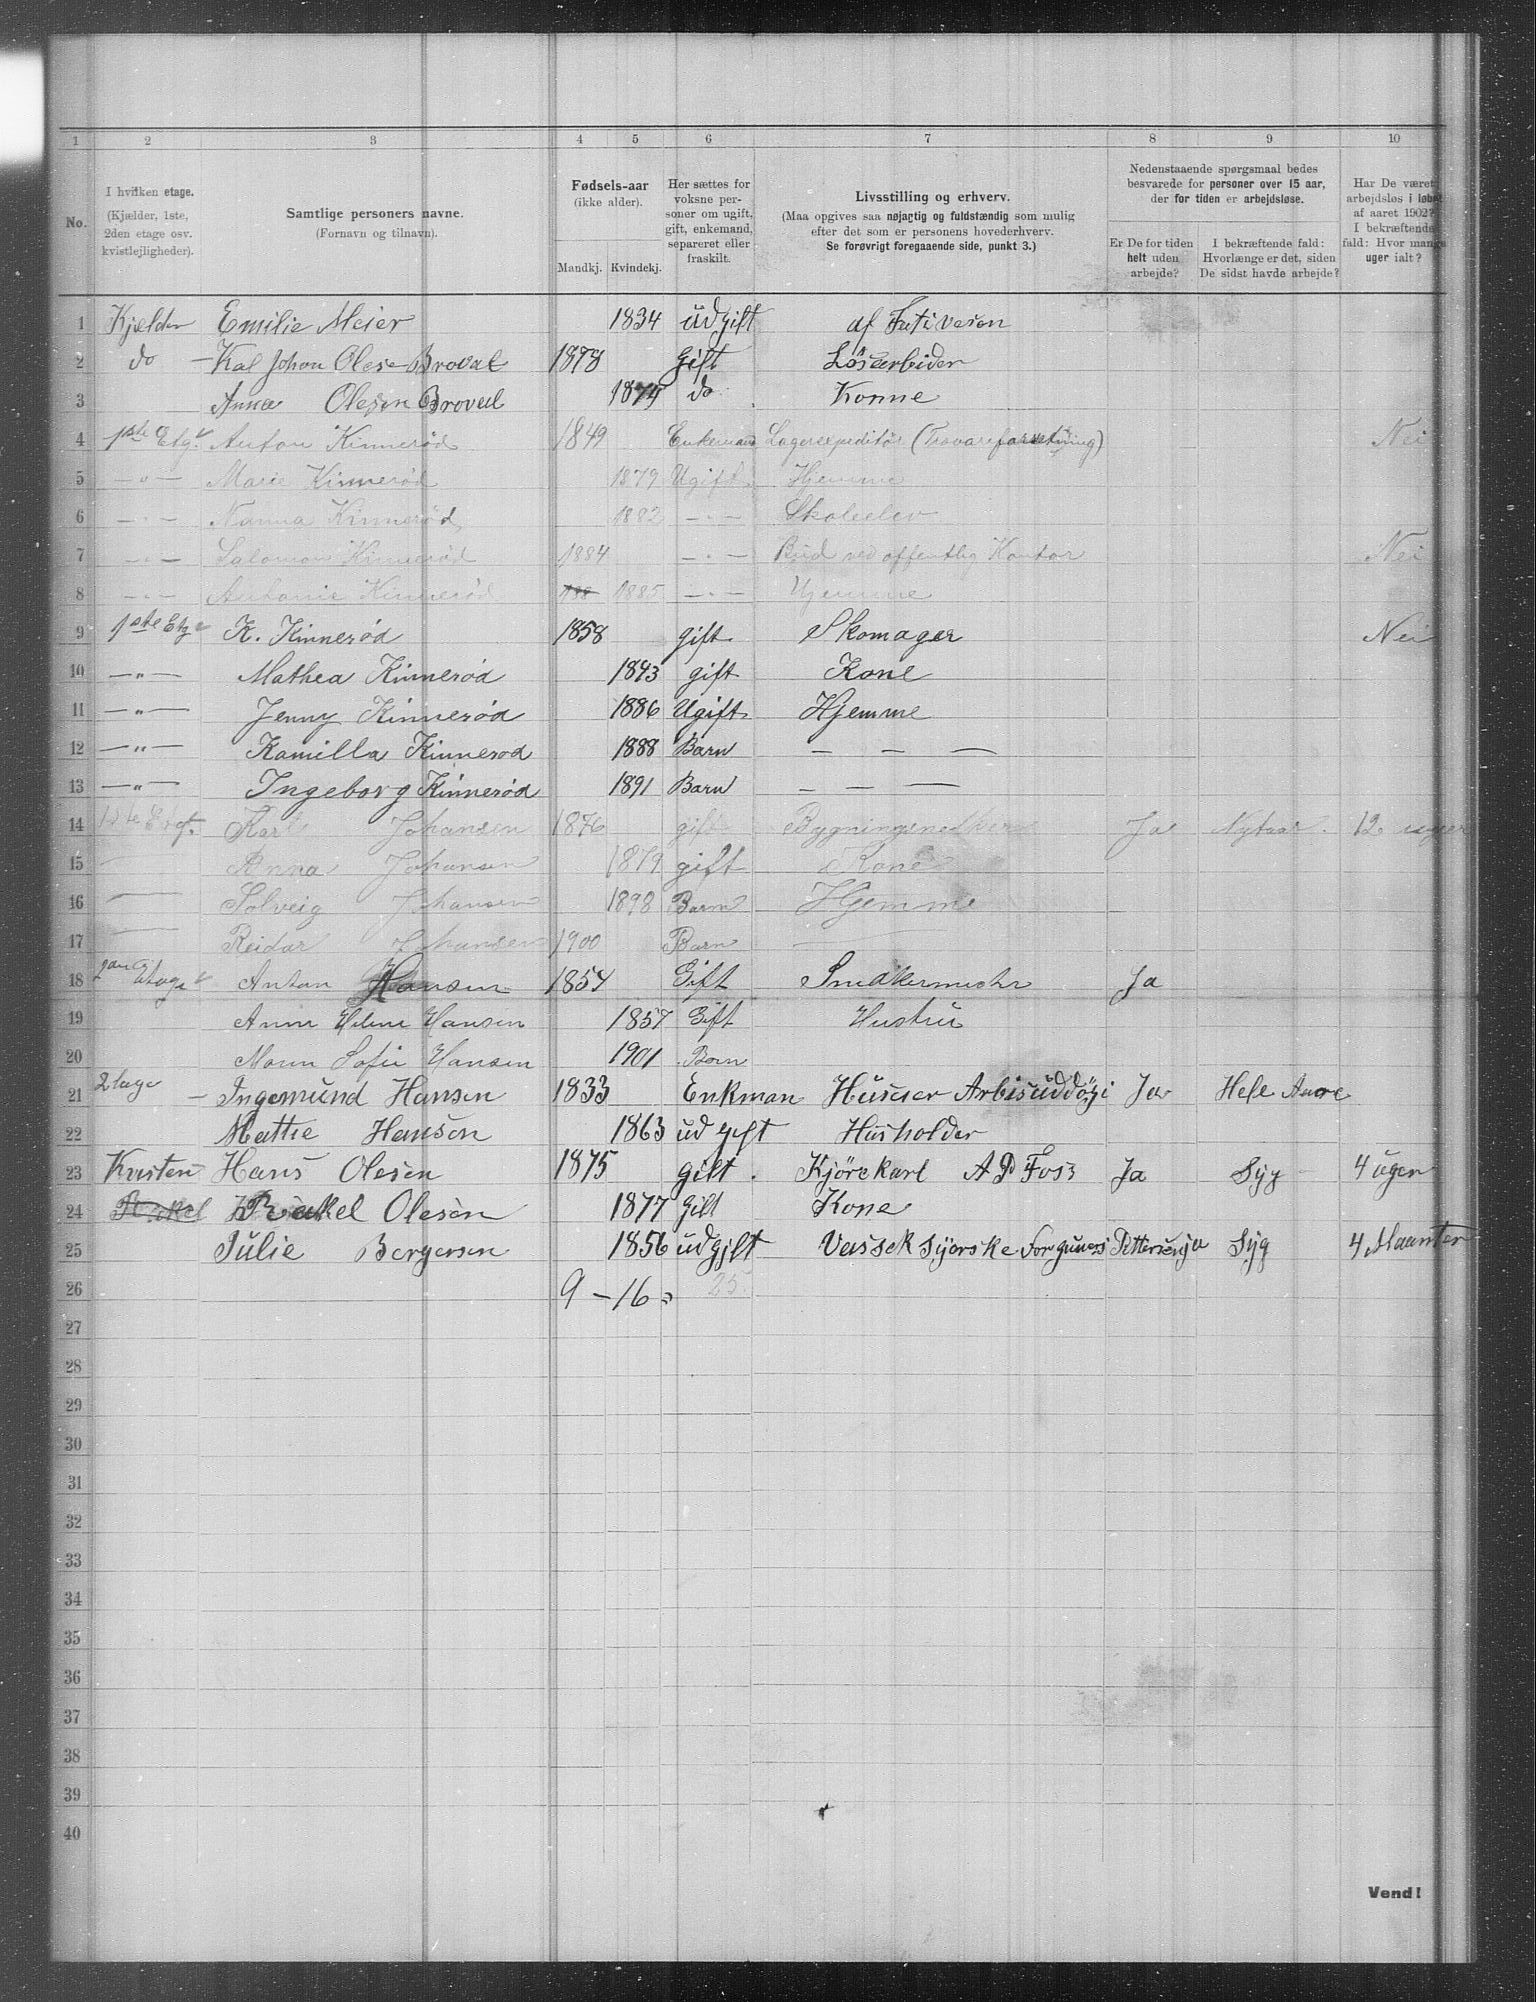 1 2 3 4 5 6 7 8 9 10
No.
I hvilken etage. (Kjælder, 1ste, 2den etage osv. kvistlejligheder).
Samtlige personers navne. (Fornavn og tilnavn).
Fødsels-aar (ikke alder). Mandkj. Kvindekj.
Her sættes for voksne personer om ugift, gift, enkemand, separeret eller fraskilt.
Livsstilling og erhverv. (Maa opgives saa nøjagtig og fuldstændig som mulig efter det som er personens hovederhverv. Se forøvrigt foregaaende side, punkt 3.)
Nedenstaaende spørgsmaal bedes besvarede for personer over 15 aar, der for tiden er arbejdsløse.
Er De for tiden helt uden arbejde?
I bekræftende fald: Hvorlænge er det, siden De sidst havde arbejde?
Har De været arbejdsløs i løbet af aaret 1902? I bekræftende fald: Hvor mange uger ialt?
1 Kjelder Emilie Meier 1834 udgift af
2 do Kal Johan Olese Broval 1878 Gift Løsarbider
3 Anna Olesen Broval 1874 do Konne
4 1ste Etg. Anton Kinnerød 1849 Enkemand Lagerexpeditør (Travareforretning) Nei
5 — " — Marie Kinnerød 1879 Ugift Hjemme
6 — " — Nanna Kinnerød 1882 — " — Skoleelev
7 — " — Salomon Kinnerød 1884 — " — Bud ved offentlig Kontor Nei
8 — " — Antonie Kinnerød 188 1885 — " — Hjemme
9 1ste Etg K. Kinnerød 1858 gift Skomager Nei
10 — " — Mathea Kinnerød 1843 gift Kone
11 — " — Jenny Kinnerød 1886 Ugift Hjemme
12 — " — Kamilla Kinnerød 1888 Barn — — —
13 — " — Ingeborg Kinnerød 1891 Barn — — —
14 1ste Karl Johansen 1876 gift Ja Nytaar. 12 uger
15 — Anna Johansen 1879 gift Kone
16 — Solveig Johansen 1898 Barn Hjemme
17 — Reidar Johansen 1900 Barn —
18 2den Etage Anton Hansen 1854 Gift Ja
19 Anne Helene Hansen 1857 Gift Hustru
20 Sofie Hansen 1901 Barn
21 2 tage Ingemund Hansen 1833 Enkman Husuer Arbisuddøgi Ja Hele Aare
22 Mathe Hansen 1863 ud gift Husholder
23 Kvisten Hans Olesen 1875 gift. Kjørekarl A D Foss Ja Syg 4 ugen
24 Rakel Rakel Olesen 1877 Gift Kone
25 Julie Bergersen 1856 udgift Vassek syerske For Pettersen ja Syg 4 Maanter
26 9 — 16 = 25.
27
28
29
30
31
32
33
34
35
36
37
38
39
40
Vend!